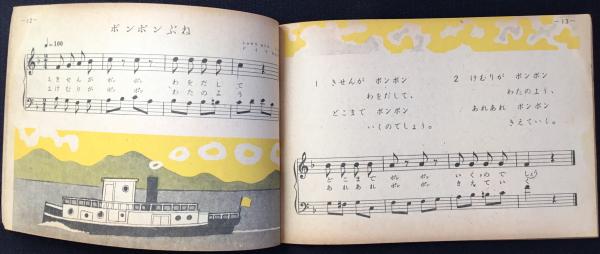 —12—
ポンポンぶね
♩=100
1.きせんが ポン ポン わをだして
2.けむりが ポン ポン わたのよう
—13—
1 きせんが ポンポン
わをだして、
どこまで ポンポン
いくのでしょう。
2 けむりが ポンポン
わたのよう、
あれあれ ポンポン
きえていく。
どこまで ポン ポン いくので しょう
あれあれ ポン ポン きえてい く